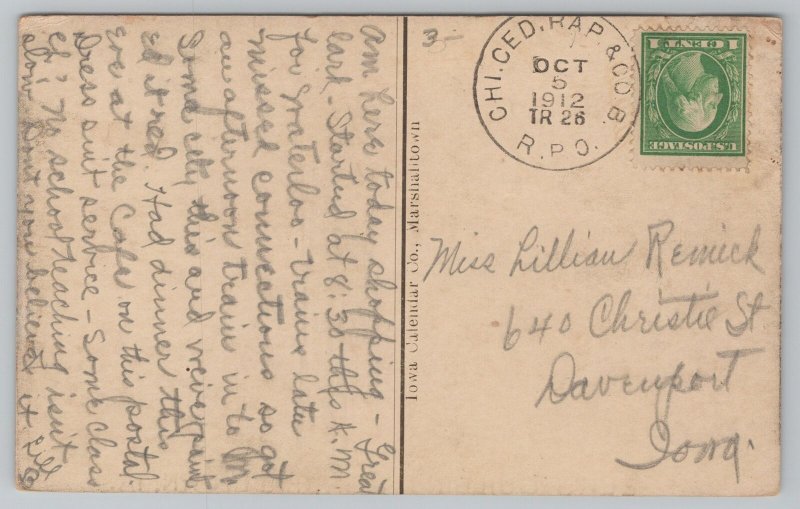 Am here today shopping - Great
lark - Started at 8:30 this A.M.
for Waterloo - trains late
missed connections so got
an afternoon train in to
Some city this and we've paint
ed it red. Had dinner this
eve at the Cafe on this postal.
Dress suit service - Some class
eh? No school teaching isn't
slow don't you believe it.
3-
CHI. CED. RAP. & CO B.
OCT
5
1912
TR 26
R.P.O.
U.S. POSTAGE
1 CENT 1
Iowa Calendar Co., Marshalltown
Miss Lillian Remick
640 Christie St
Davenport
Iowa.